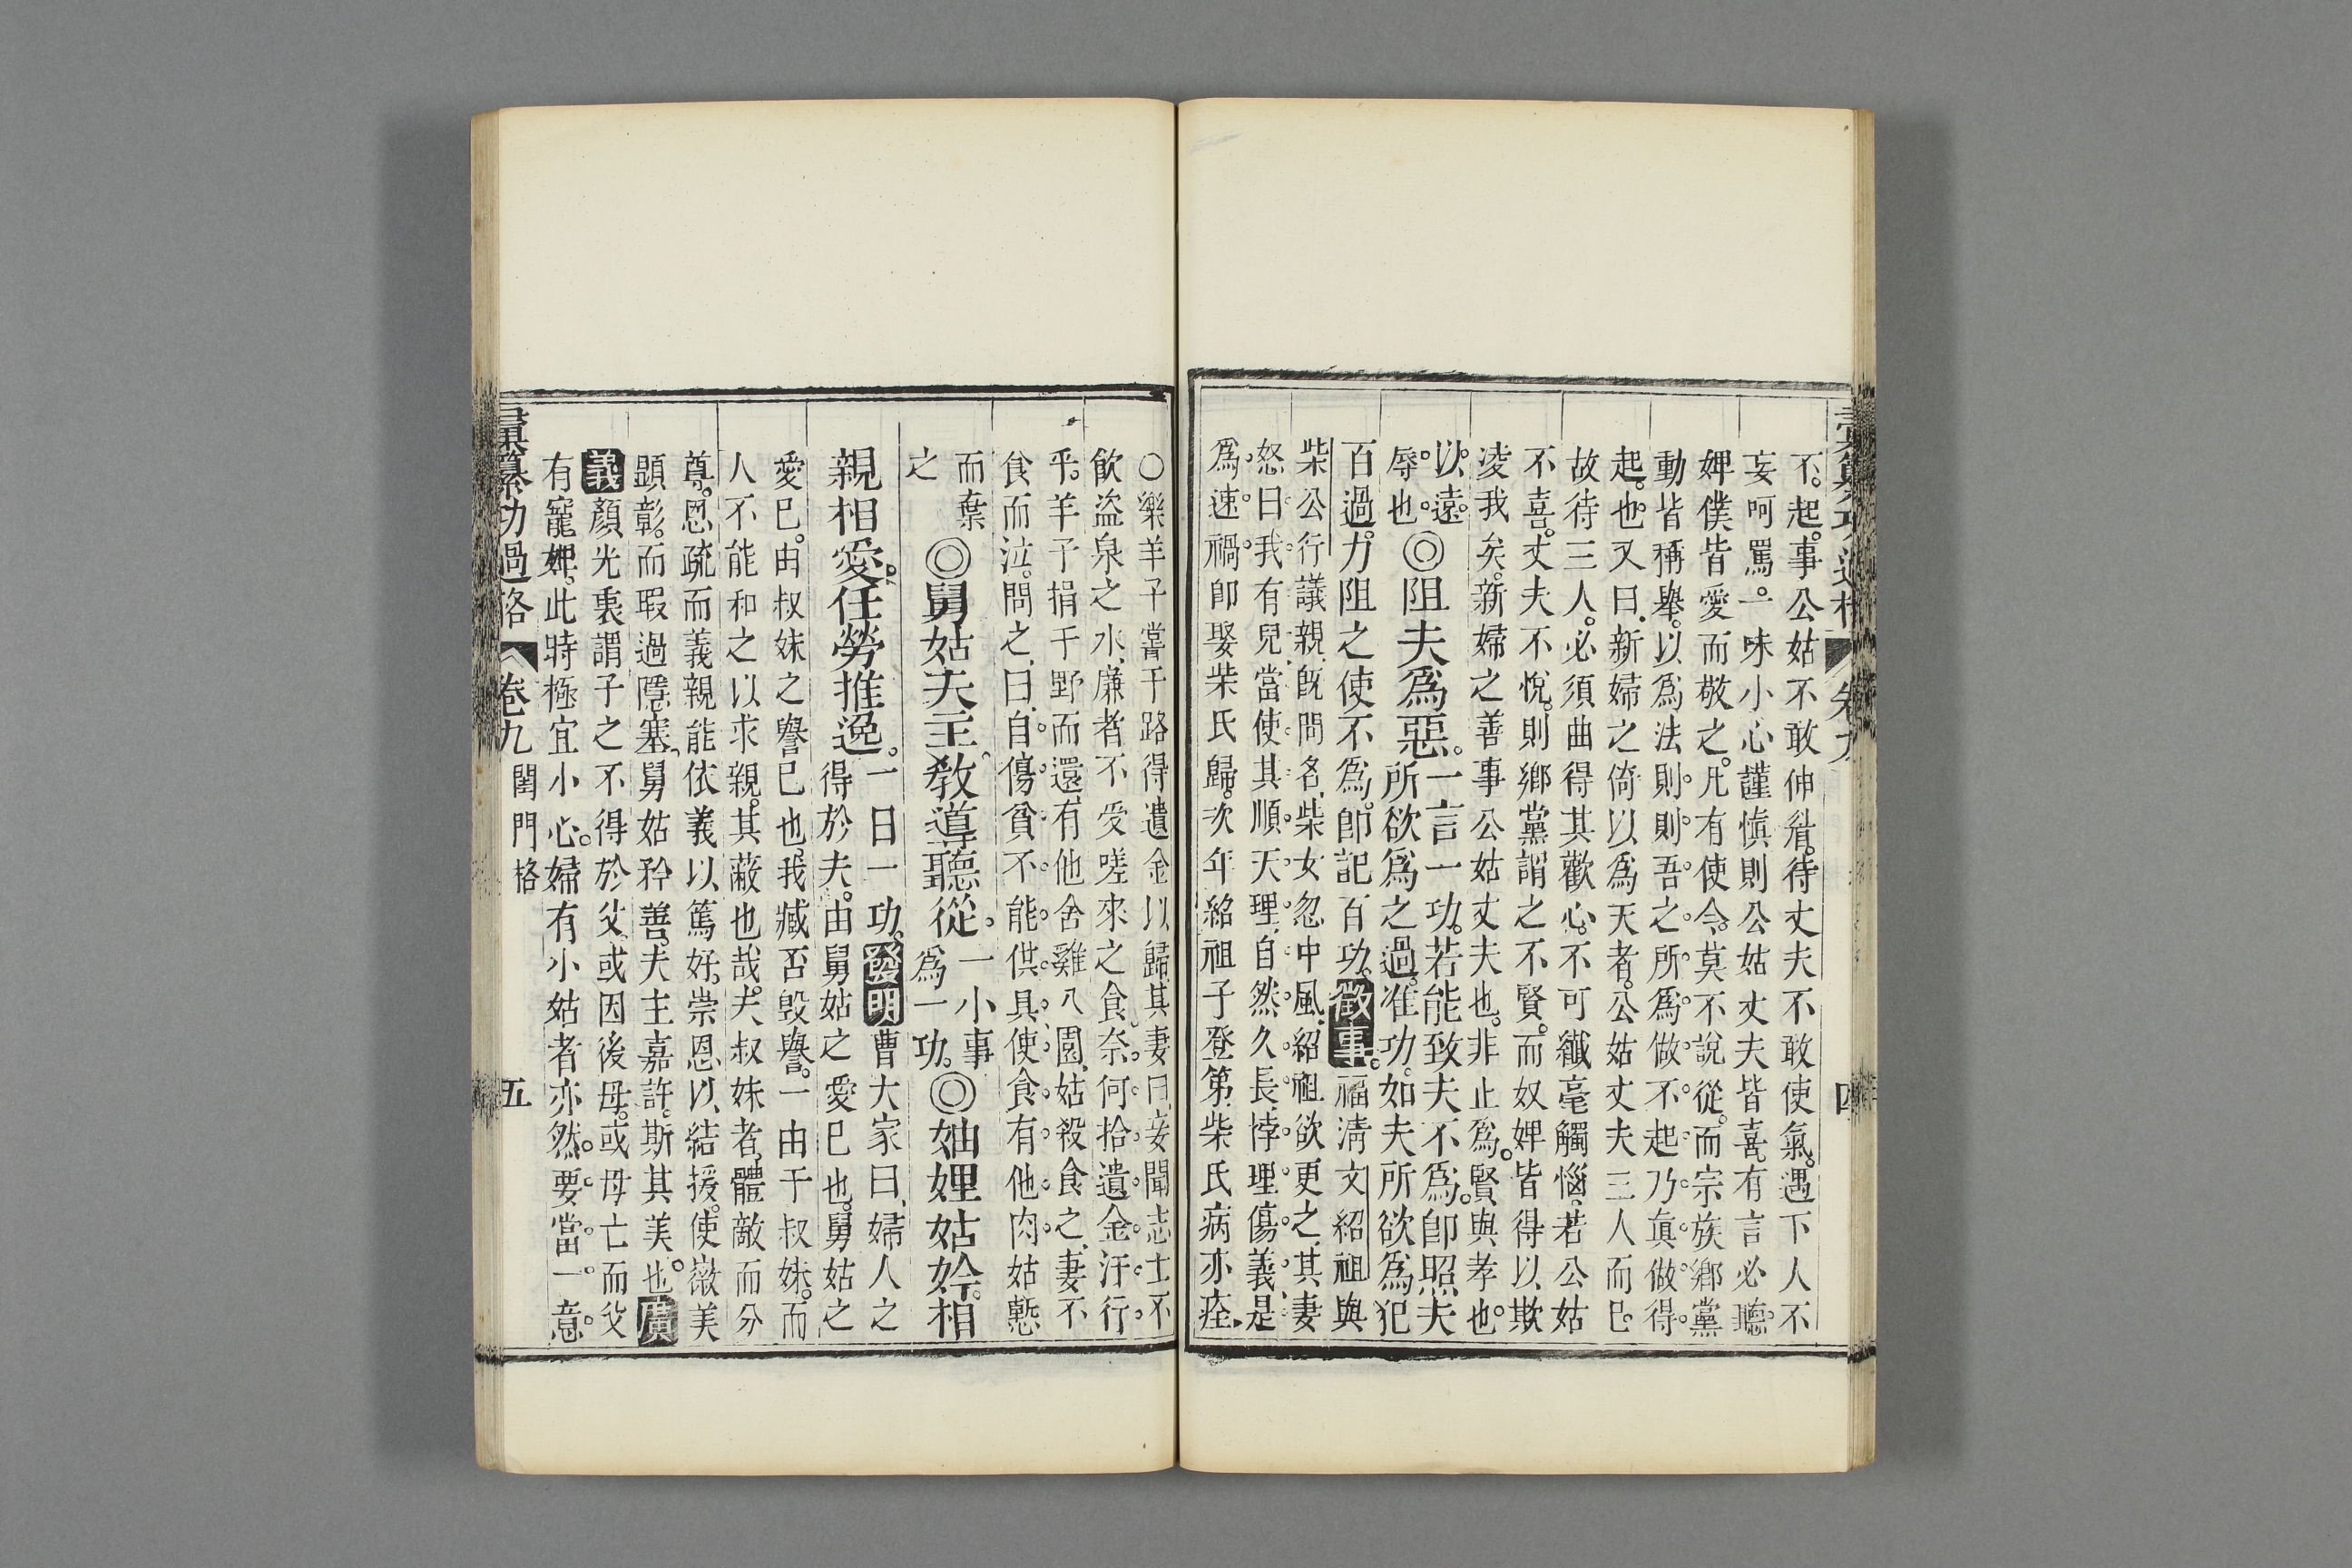 彙纂功過格 卷九 四
不起事公姑不敢伸眉待丈夫不敢使氣遇下人不
妄呵罵一味小心謹慎則公姑丈夫皆喜有言必聽
婢僕皆愛而敬之凡有使令莫不說從而宗族鄉黨
動皆稱舉以爲法則則吾之所爲做不起乃眞做得
起也又曰新婦之倚以爲天者公姑丈夫三人而已
故待三人必須曲得其歡心不可纖毫觸惱若公姑
不喜丈夫不悅則鄉黨謂之不賢而奴婢皆得以欺
凌我矣新婦之善事公姑丈夫也非止爲賢與孝也
以遠
辱也
◎阻夫爲惡
一言一功若能致夫不爲卽照夫
所欲爲之過准功如夫所欲爲犯
百過力阻之使不爲卽記百功徵事福淸文紹祖與
柴公行議親旣問名柴女忽中風紹祖欲更之其妻
怒曰我有兒當使其順天理自然久長悖理傷義是
爲速禍卽娶柴氏歸次年紹祖子登第柴氏病亦痊
○樂羊子嘗于路得遺金以歸其妻曰妾聞志士不
飮盜泉之水廉者不受嗟來之食奈何拾遺金汙行
乎羊子捐于野而還有他舍雞入園姑殺食之妻不
食而泣問之曰自傷貧不能供具使食有他肉姑慙
而棄
之
◎舅姑夫主敎導聽從
一小事
爲一功
◎妯娌姑妗相
親相愛任勞推逸
一日一功發明曹大家曰婦人之
得於夫由舅姑之愛已也舅姑之
愛已由叔妹之譽已也我臧否毀譽一由于叔妹而
人不能和之以求親其蔽也哉夫叔妹者體敵而分
尊恩疏而義親能依義以篤好崇恩以結援使媺美
顯彰而瑕過隱塞舅姑矜善夫主嘉許斯其美也廣
義顏光衷謂子之不得於父或因後母或母亡而父
有寵婢此時極宜小心婦有小姑者亦然要當一意
彙纂功過格 卷九 閨門格 五